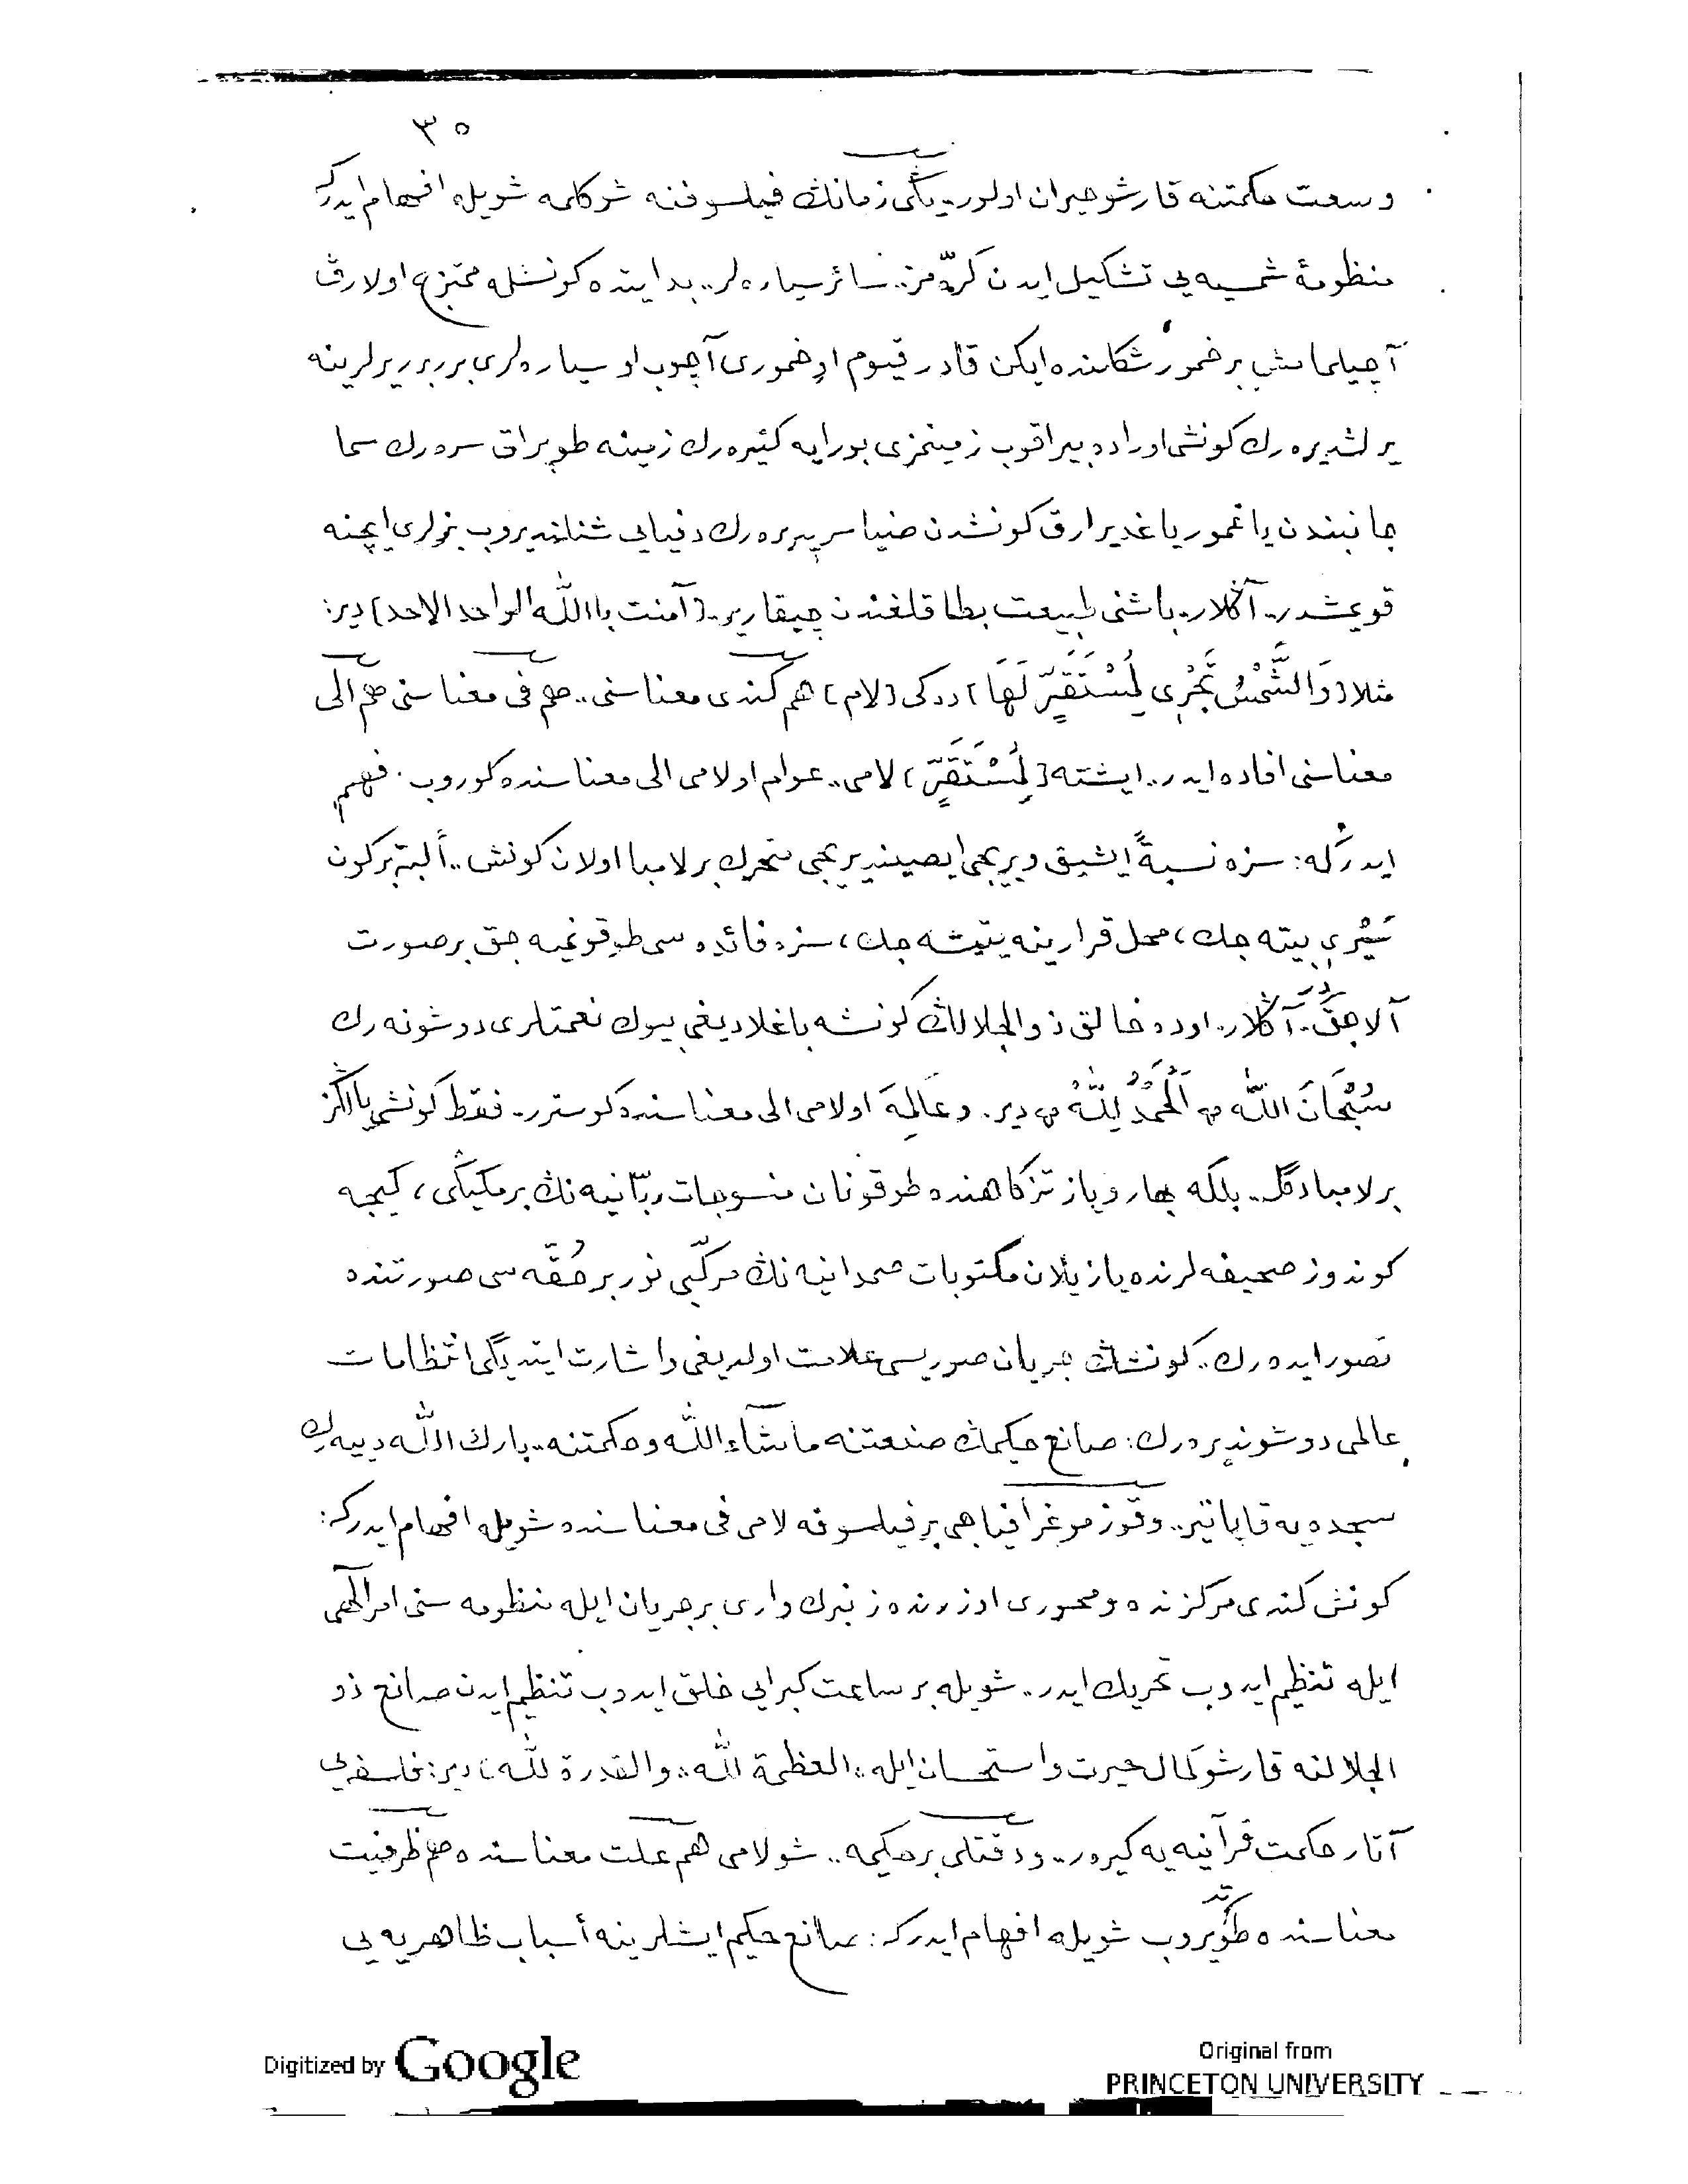 ٣٥
وسعت حكمتنه قارشو حيران اولور.. يڭى زمانڭ فيلسوفنه شو كلمه شويله افهام ايدركه
منظومۀ شمسيه يى تشكيل ايدن كرّه مز.. سائر سياره لر.. بدايتده كونشله ممتزج اولارق
آچيلمامش بر خمور شكلنده ايكن قادر قيوم او خمورى آچوب او سياره لرى برر برر يرلرينه
يرلشديره رك كونشى اوراده بيراقوب زمينمزى بورايه كتيره رك زمينه طوپراق سره رك سما
جانبندن ياغمور ياغديرارق كونشدن ضيا سرپديره رك دنيايى شنلنديروب بزلرى ايچنه
قويمشدر.. آڭلار. باشنى طبيعت بطاقلغندن چيقارير.. [آمنت بالله الواحد الاحد] دير:
مثلا [وَالشَّمْسُ تَجْرِى لِمُسْتَقَرٍّ لَهَا] ده كى [لام] هم كندى معناسنى.. هم فى معناسنى هم الى
معناسنى افاده ايدر.. ايشته [لِمُسْتَقَرٍّ] لامى.. عوام او لامى الى معناسنده كوروب. فهم
ايدركه: سزه نسبةً ايشيق ويريجى ايصينديريجى متحرك بر لامبا اولان كونش.. ألبته بر كون
سَيْرى بيته جك، محل قرارينه يتيشه جك، سزه فائده سى طوقونميه جق بر صورت
آلاجقدر. آڭلار. اوده خالق ذو الجلالڭ كونشه باغلاديغى بيوك نعمتلرى دوشونه رك
سُبْحَانَ اللّٰه اَلْحَمْدُ لِلّٰه دير. وعالمه او لامى الى معناسنده كوسترر. فقط كونشى يالڭز
بر لامبا دگل.. بلكه بهار و ياز تزكاهنده طوقونان منسوجات ربّانيه نڭ بر مكيگى، كيجه
كوندوز صحيفه لرنده يازيلان مكتوبات صمدانيه نڭ مركّبى نور بر حُقّه سى صورتنده
تصور ايده رك.. كونشڭ جريان صوريسى علامت اولديغى واشارت ايتديگى انتظامات
عالمى دوشونديره رك: صانع حكيمڭ صنعتنه ماشآء اللّٰه وحكمتنه.. بارك اللّٰه دييه رك
سجده يه قاپانير.. وقوزموغرافياجى بر فيلسوفه لامى فى معناسنده شويله افهام ايدركه:
كونش كندى مركزنده و محورى اوزرنده زنبرك وارى بر جريان ايله منظومه سنى امر الٓهى
ايله تنظيم ايدوب تحريك ايدر.. شويله بر ساعت كبرايى خلق ايدوب تنظيم ايدن صانع ذو
الجلالنه قارشو كمال حيرت واستحسان ايله «العظمة للّٰه» «والقدرة للّٰه» دير: فلسفه يى
آتار حكمت قرآنيه يه كيرر.. ودقتلى بر حكيمه.. شو لامى هم علت معناسنده هم ظرفيت
معناسنده طوتديروب شويله افهام ايدركه: صانع حكيم ايشلرينه أسباب ظاهريه يى
Digitized by Google
Original from
PRINCETON UNIVERSITY